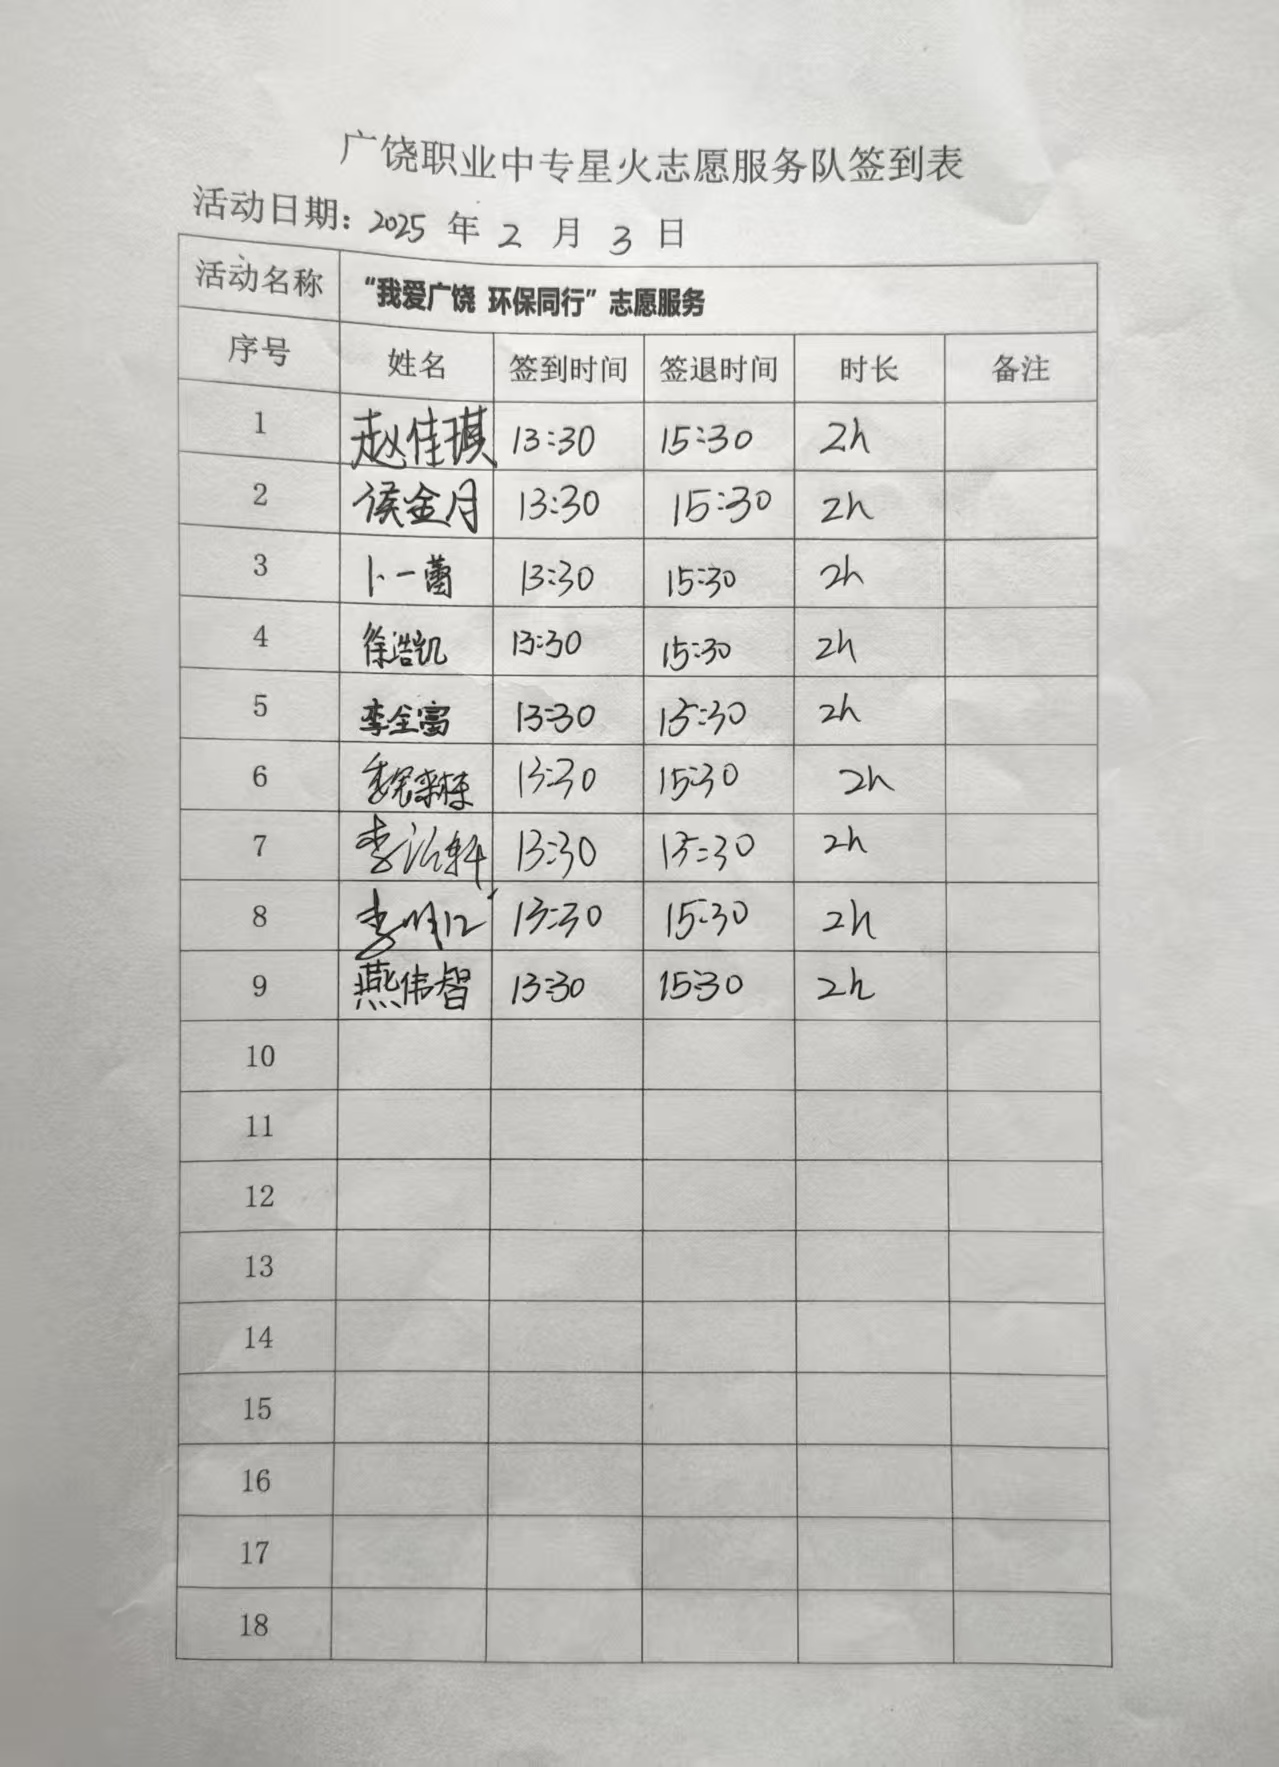 广饶职业中专星火志愿服务队签到表
活动日期：2025 年 2 月 3 日
活动名称 “我爱广饶 环保同行”志愿服务
序号 姓名 签到时间 签退时间 时长 备注
1 赵佳琪 13:30 15:30 2h
2 侯金月 13:30 15:30 2h
3 卜一蕾 13:30 15:30 2h
4 徐浩凯 13:30 15:30 2h
5 李全富 13:30 15:30 2h
6 13:30 15:30 2h
7 李 轩 13:30 15:30 2h
8 李明 13:30 15:30 2h
9 燕伟智 13:30 15:30 2h
10
11
12
13
14
15
16
17
18